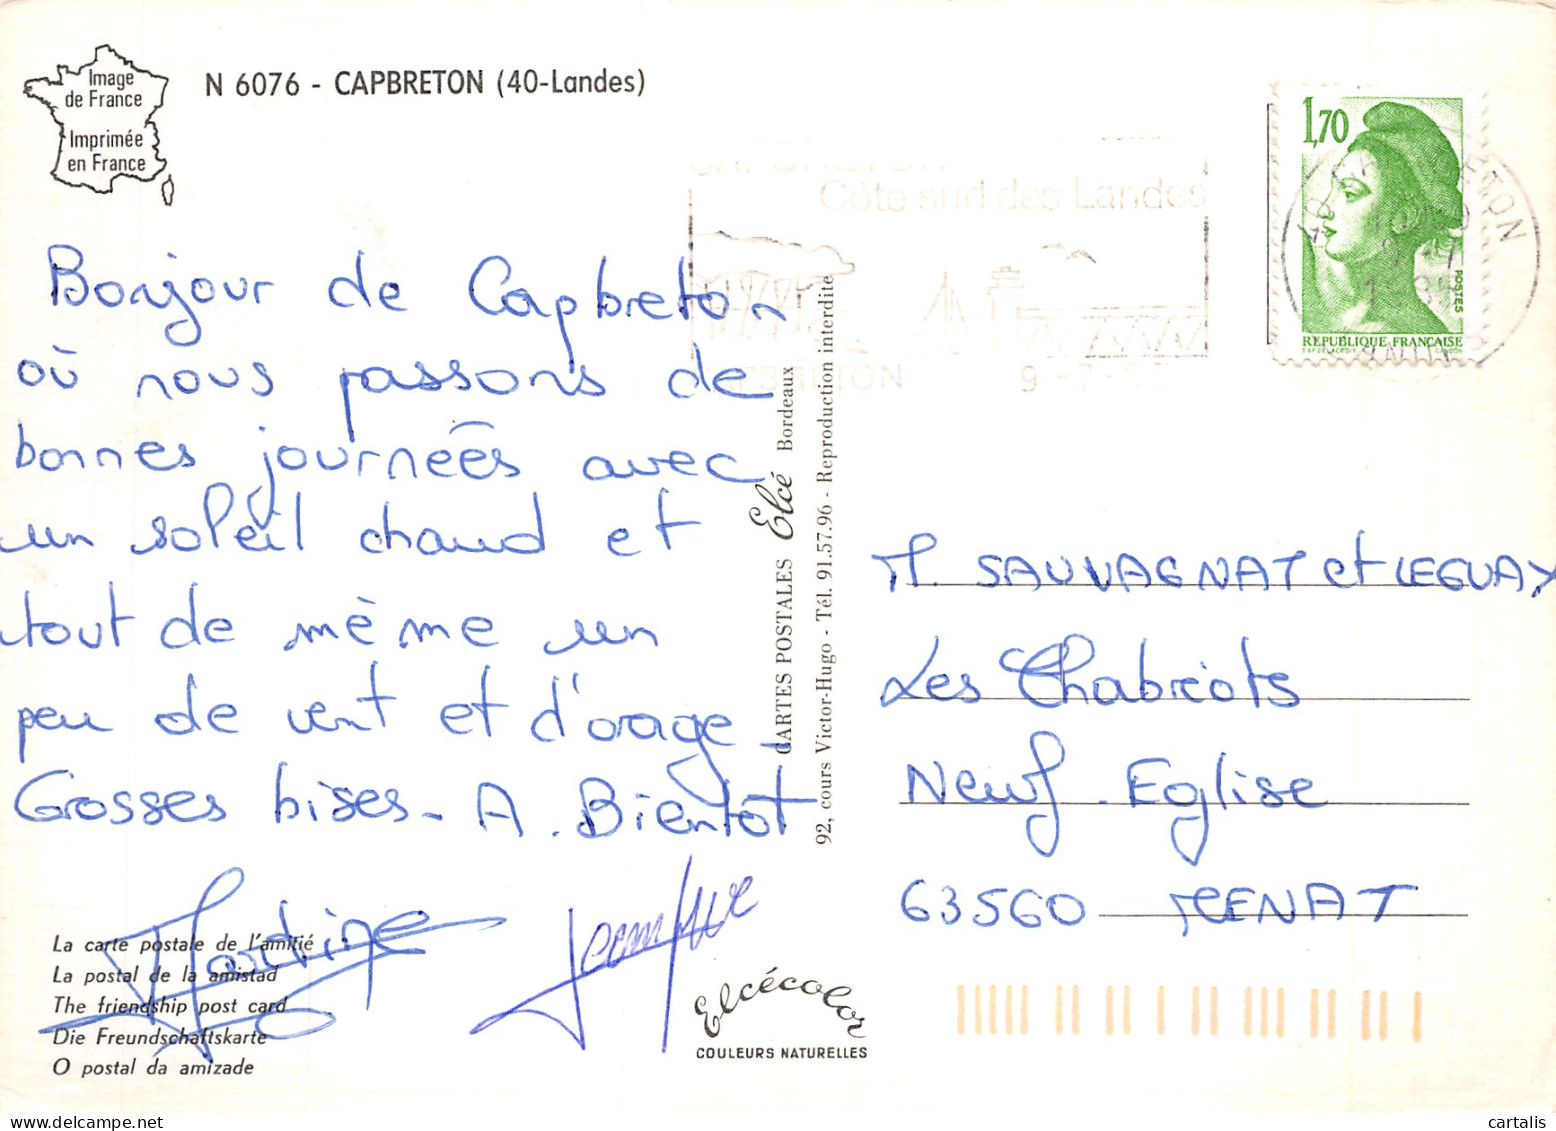 Image
de France
Imprimée
en France
N 6076 - CAPBRETON (40-Landes)
1,70
POSTES
REPUBLIQUE FRANCAISE
Côte sud des Landes
CAPBRETON 9 -7-
Bonjour de Capbreton
où nous passons de
bonnes journées avec
un soleil chaud et
tout de même un
peu de vent et d'orage_
Grosses bises_ A. Bientôt
Martine
CARTES POSTALES Elcé Bordeaux
92, cours Victor-Hugo - Tél. 91.57.96 - Reproduction interdite
M. SAUVAGNAT et LEGUAY
Les Chabriots
Neuf-Eglise
63560 MENAT
La carte postale de l'amitié
La postal de la amistad
The friendship post card
Die Freundschaftskarte
O postal da amizade
Elcécolor
COULEURS NATURELLES
cartalis